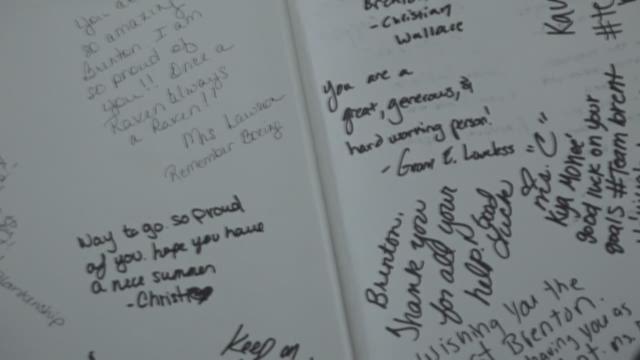 You a
so amazing
Brenton I am
so proud of
you!! Once a
Raven always
a Raven!!
Mrs Lawson
Remember
Way to go so proud
of you. hope you have
a nice summer
-Christ
Keep on
-Christian
Wallace
You are a
great, generous, &
hard working person!
- Grant E. Lawless
Brenton,
Thank you
for all your
help. Good
luck
Kiya
good luck on your
goals #Team brent
Wishing you the
Brenton.
you as